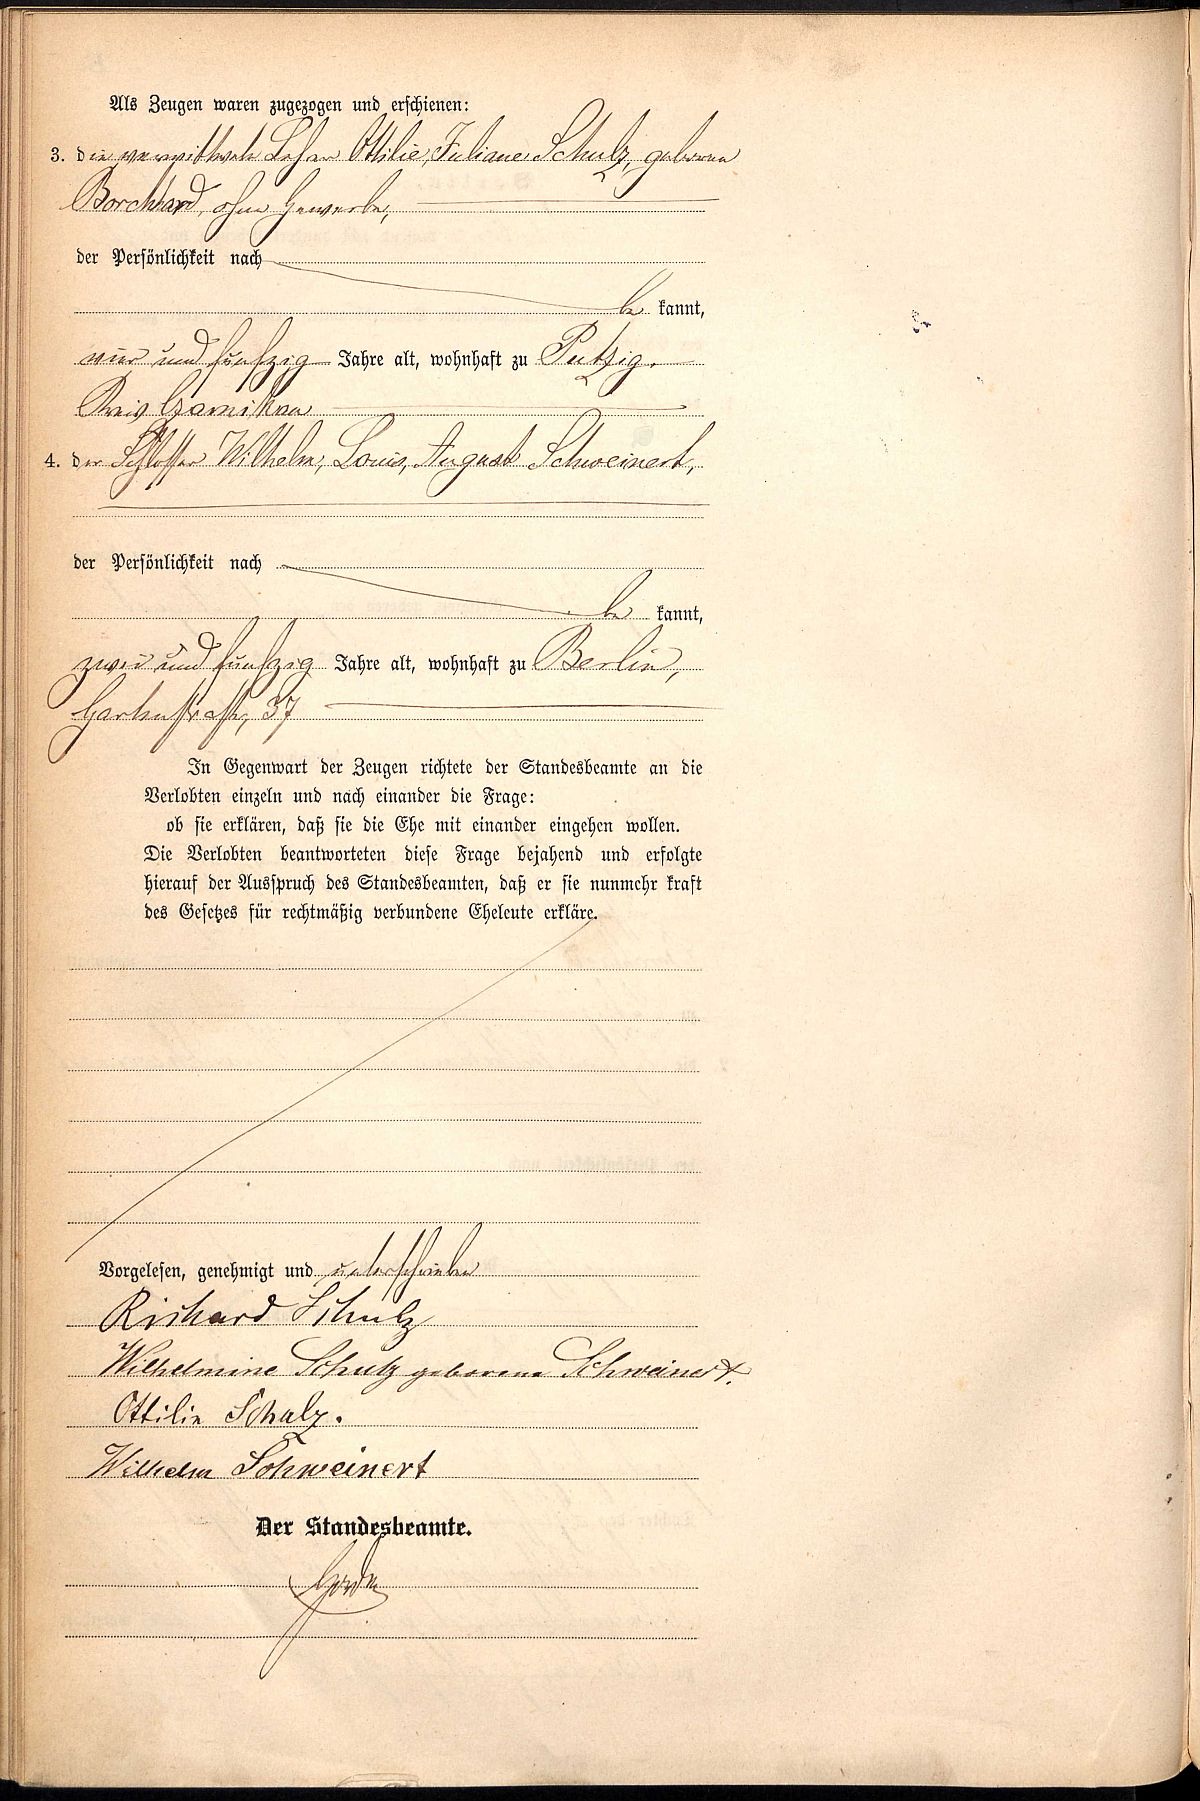 Als Zeugen waren zugezogen und erschienen:
3. die verwittwete Ottilie, Juliane Schulz, geborene
Borchard, ohne Gewerbe,
der Persönlichkeit nach
be kannt,
vier und funfzig Jahre alt, wohnhaft zu Putzig,
Kreis Czarnikau
4. der Schlosser Wilhelm, Louis, August Schweinert,
der Persönlichkeit nach
be kannt,
zwei und funfzig Jahre alt, wohnhaft zu Berlin,
Gartenstraße, 37
In Gegenwart der Zeugen richtete der Standesbeamte an die
Verlobten einzeln und nach einander die Frage:
ob sie erklären, daß sie die Ehe mit einander eingehen wollen.
Die Verlobten beantworteten diese Frage bejahend und erfolgte
hierauf der Ausspruch des Standesbeamten, daß er sie nunmehr kraft
des Gesetzes für rechtmäßig verbundene Eheleute erkläre.
Vorgelesen, genehmigt und unterschrieben
Richard Schulz
Wilhelmine Schulz geborene Schweinert.
Ottilie Schulz.
Wilhelm Schweinert
Der Standesbeamte.